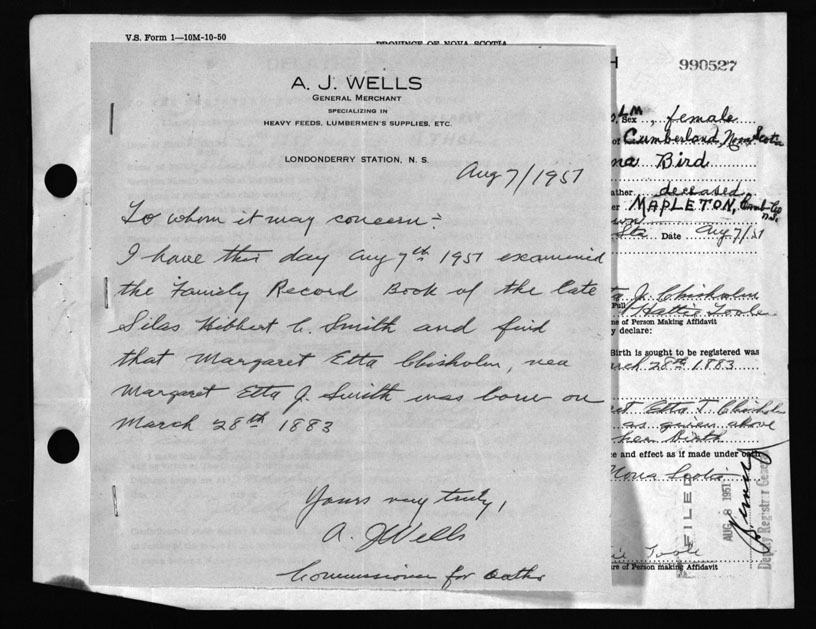 V.S. Form 1—10M-10-50
PROVINCE OF NOVA SCOTIA
A. J. WELLS
GENERAL MERCHANT
SPECIALIZING IN
HEAVY FEEDS, LUMBERMEN'S SUPPLIES, ETC.
LONDONDERRY STATION, N. S.
Aug 7/1951
To whom it may concern:
I have this day Aug 7th 1951 examined
the Family Record Book of the late
Silas Hibbert C. Smith and find
that Margaret Etta Chisholm, nea
Margaret Etta J. Smith was born on
March 28th 1883
Yours very truly,
A. J Wells
Commissioner for Oaths
H 990527
Sex female
of Cumberland, Nova Scotia
na Bird
ather deceased
er MAPLETON, Cumb. Co N.S.
wn
Sta Date Aug 7/51
ta J. Chisholm
Full Hattie Toole
me of Person Making Affidavit
y declare:
Birth is sought to be registered was
arch 28th 1883
et Etta J. Chisholm
as given above
her birth
ce and effect as if made under oath
Nova Scotia
FILED
AUG 8 1951
Deputy Registrar General
ie Toole
re of Person making Affidavit